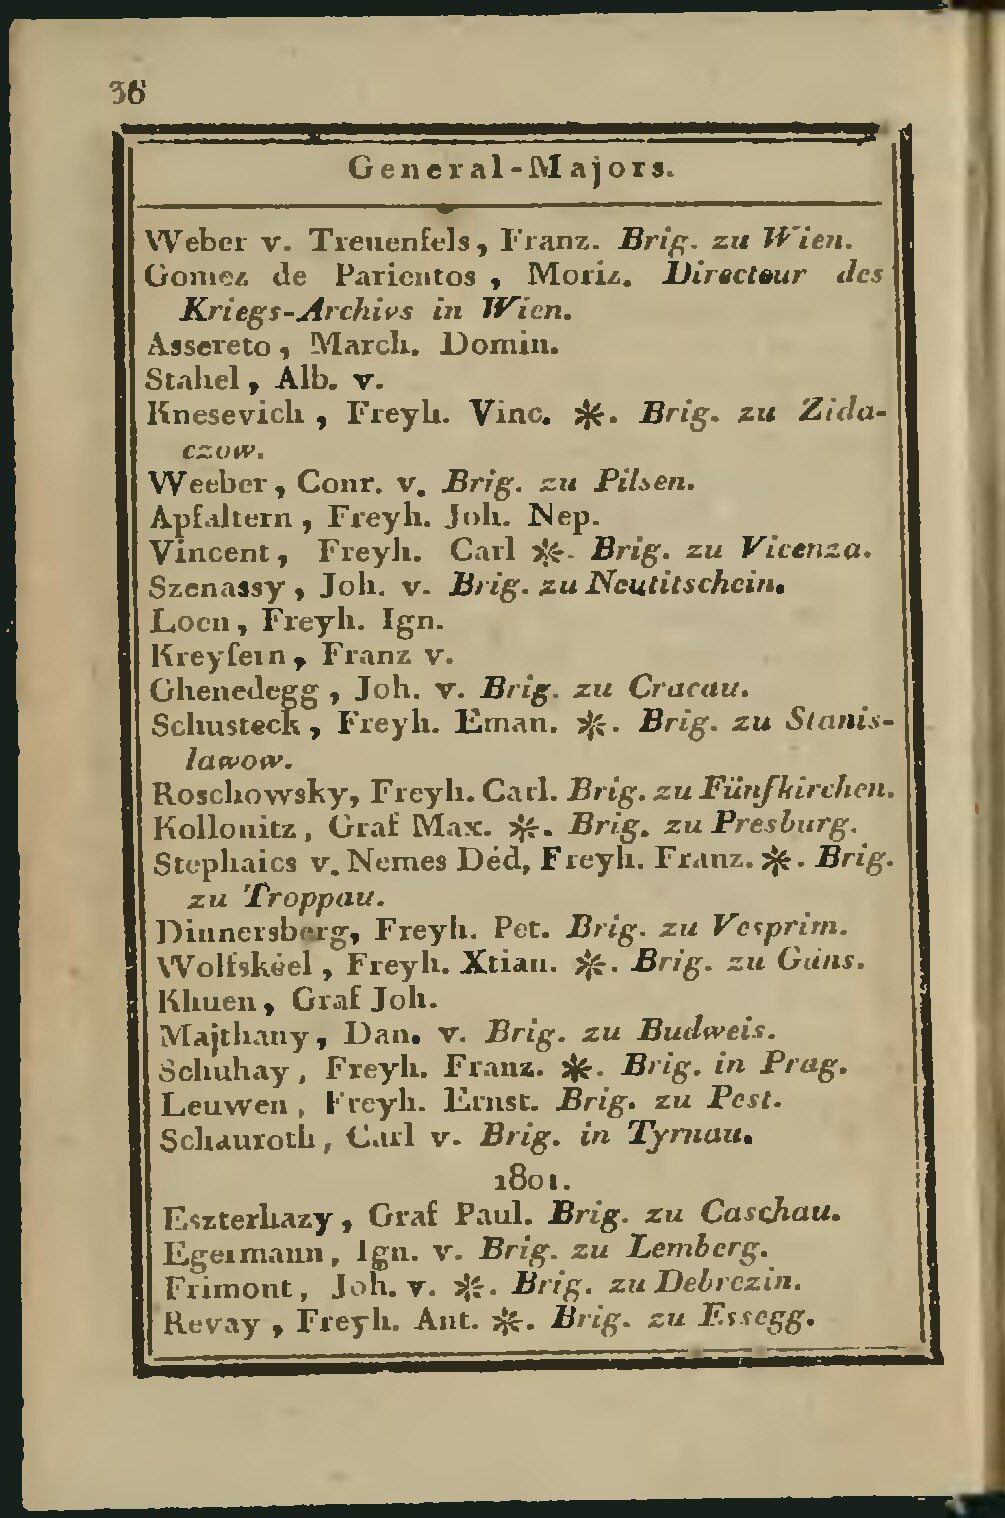 36
General-Majors.
Weber v. Treuenfels, Franz. Brig. zu Wien.
Gomez de Parientos, Moriz. Directeur des
Kriegs-Archivs in Wien.
Assereto, March. Domin.
Stahel, Alb. v.
Knesevich, Freyh. Vinc. ✻. Brig. zu Zida-
czow.
Weeber, Conr. v. Brig. zu Pilsen.
Apfaltern, Freyh. Joh. Nep.
Vincent, Freyh. Carl ✻. Brig. zu Vicenza.
Szenassy, Joh. v. Brig. zu Neutitschein.
Loen, Freyh. Ign.
Kreyſern, Franz v.
Ghenedegg, Joh. v. Brig. zu Cracau.
Schusteck, Freyh. Eman. ✻. Brig. zu Stanis-
lawow.
Roschowsky, Freyh. Carl. Brig. zu Fünfkirchen.
Kollonitz, Graf Max. ✻. Brig. zu Presburg.
Stephaics v. Nemes Déd, Freyh. Franz. ✻. Brig.
zu Troppau.
Dinnersberg, Freyh. Pet. Brig. zu Vesprim.
Wolfskéel, Freyh. Xtian. ✻. Brig. zu Güns.
Khuen, Graf Joh.
Majthany, Dan. v. Brig. zu Budweis.
Schuhay, Freyh. Franz. ✻. Brig. in Prag.
Leuwen, Freyh. Ernst. Brig. zu Pest.
Schauroth, Carl v. Brig. in Tyrnau.
1801.
Eszterhazy, Graf Paul. Brig. zu Caschau.
Egermann, Ign. v. Brig. zu Lemberg.
Frimont, Joh. v. ✻. Brig. zu Debrezin.
Revay, Freyh. Ant. ✻. Brig. zu Essegg.